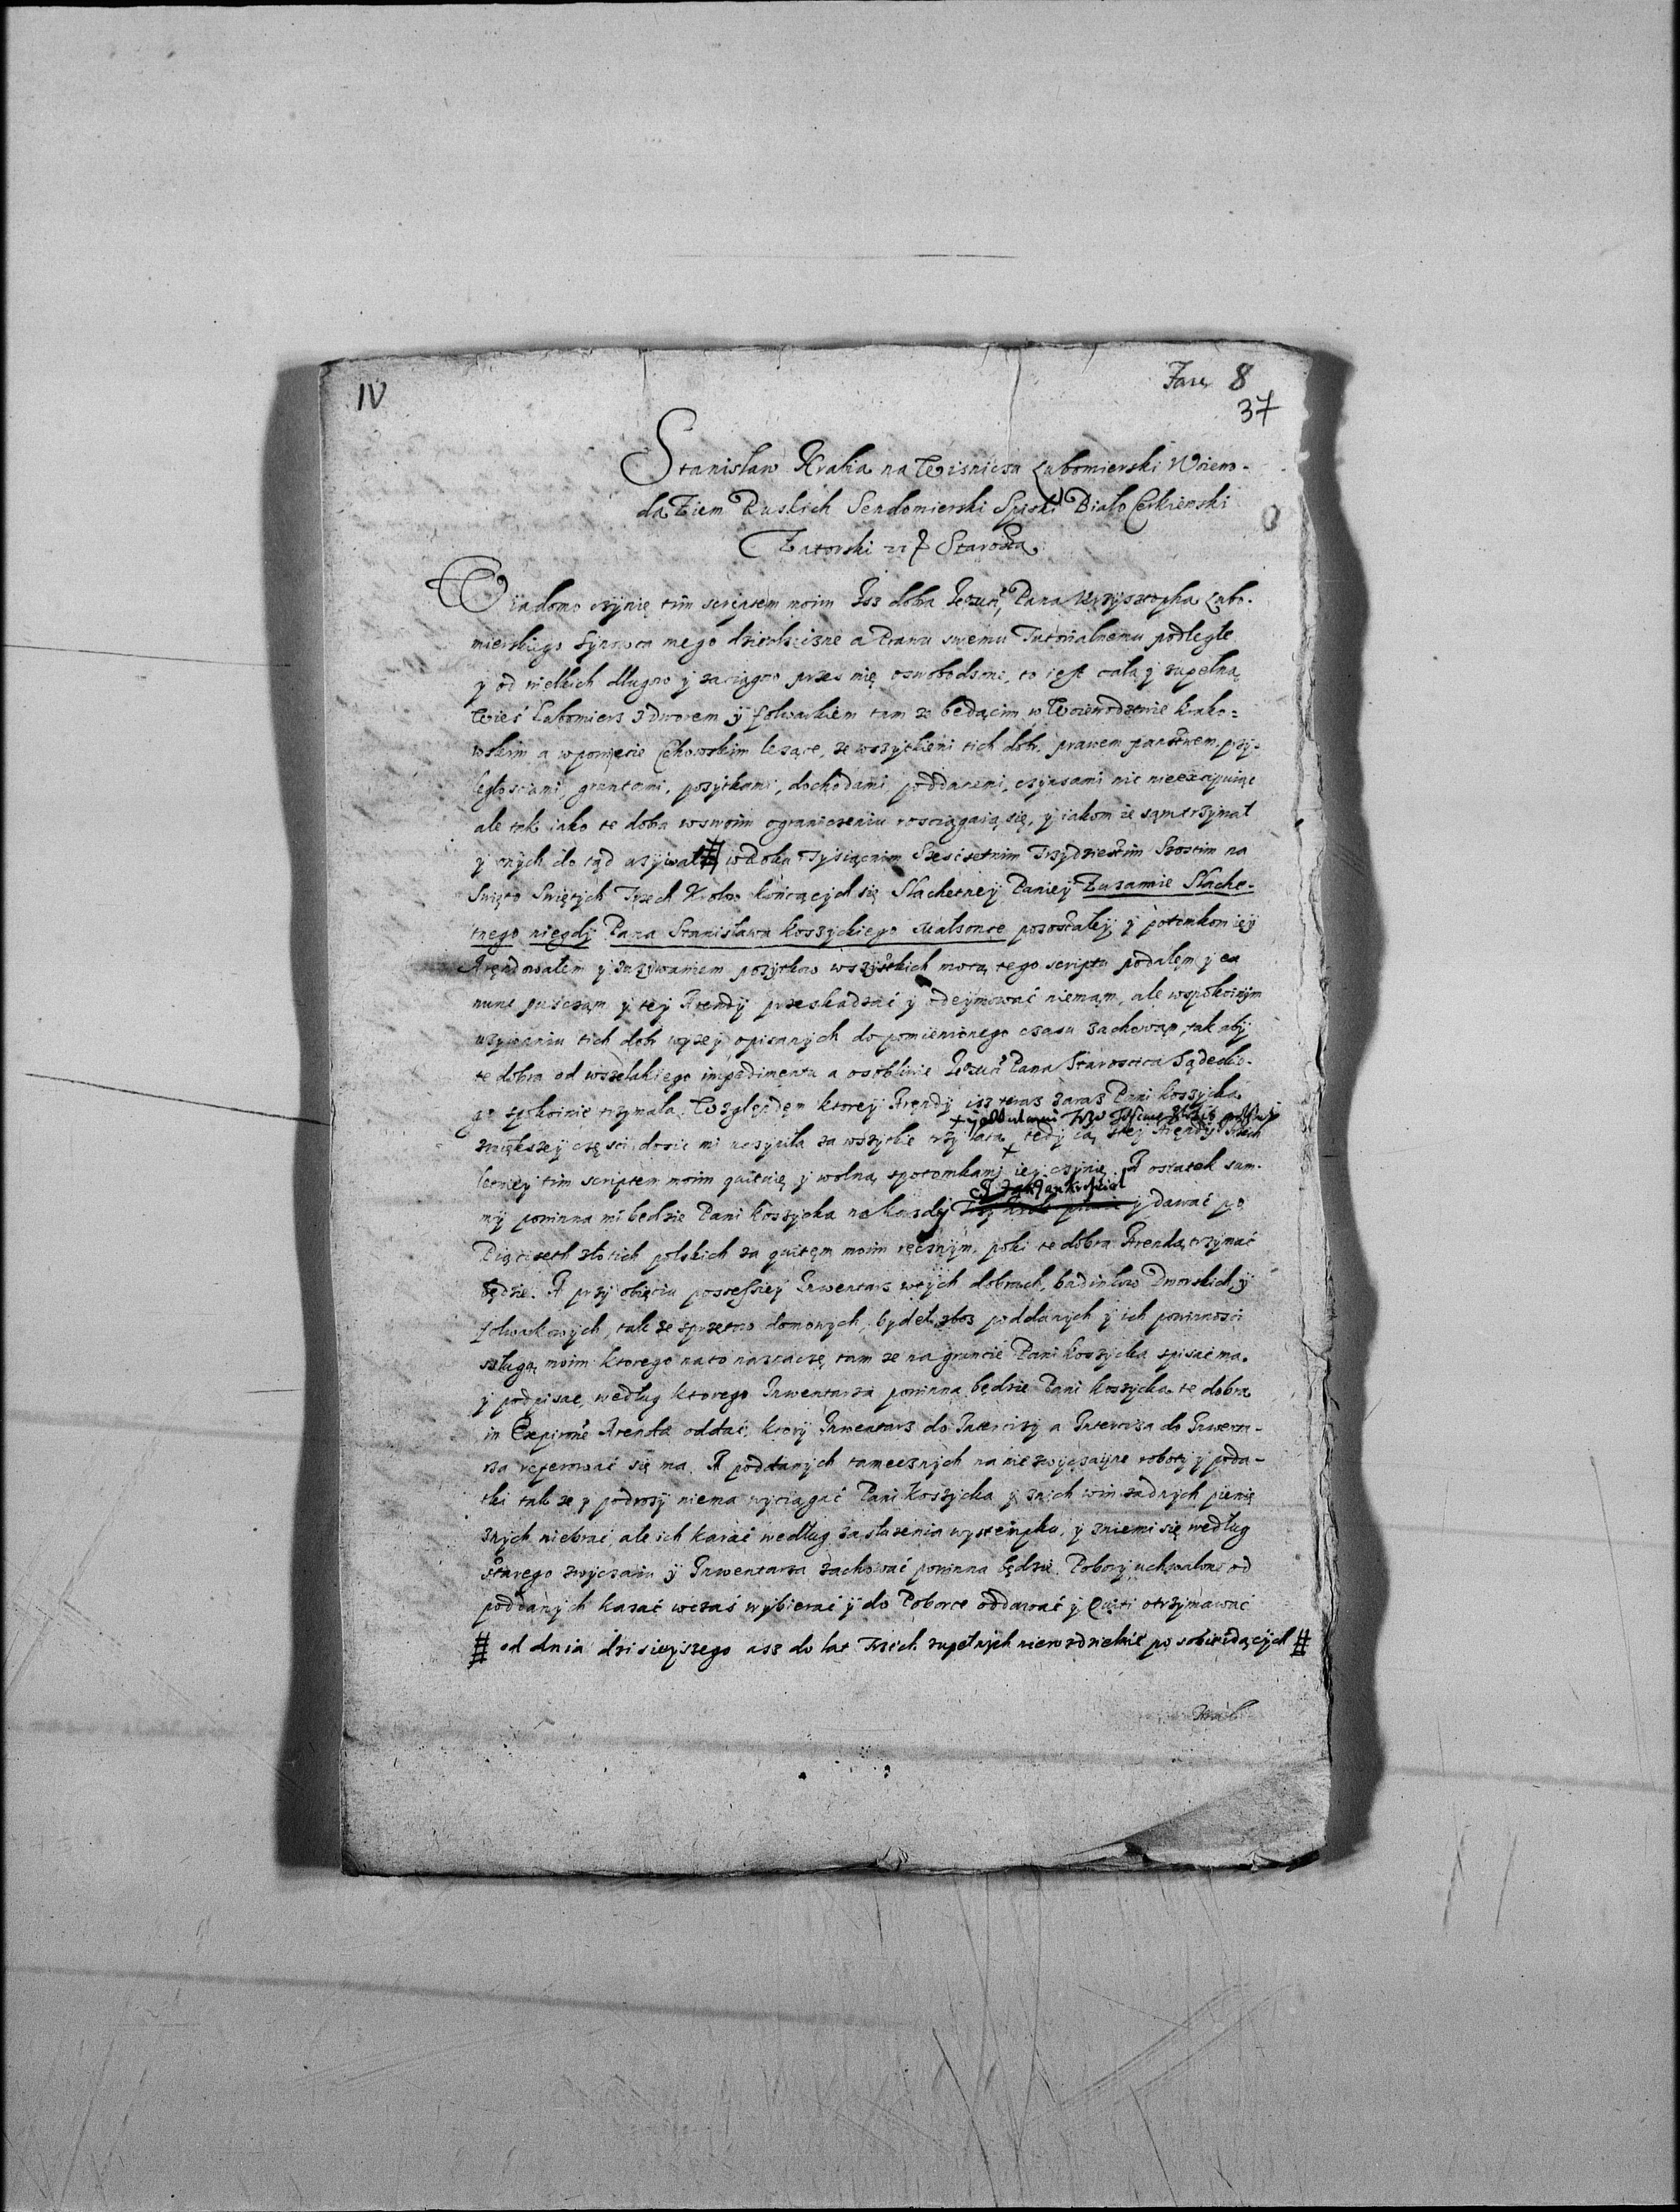 IV
8
37
Stanisław Hrabia na Wisniczu Lubomierski Woiewo-
da Ziem Ruskich Sendomierski Spiski Biało Cerkiewski
Zatorski Starosta
Wiadomo czynię tim scriptem moim Isz dobra Pana Krzysztopha Lubo-
mierskiego Synowca mego dziedziczne a Prawu swemu Tutorialnemu podległe
y od wielkich długow y zaciągow przez mię oswobodzone, to iest całą y zupełną
Wieś Lubomierz z dworem y folwarkiem tam ze będącim w Woiewodztwie Krako-
wskim a w powiecie Cchowskim leżące, ze wszytkiemi tich dobr prawem panstwem przy-
ległosciami, gruntami, pożytkami, dochodami poddanemi, czynszami nic nieexcipuiąc
ale tak iako te dobra w swoim ograniczeniu rosciągaią się, y iakom ie sam trzymał
y onych do tąd używał # w Roku Tysiącnim Szescsetnim Trzydziestim Szostim na
Swięto Swiętych Trzech Krolow kończących się Slachetney Paniey Zuzannie Slache-
tnego niegdy Pana Stanisława Koszyckiego Małzonce pozostałey y potomkom iey
Arędowałem y zażywaniem pożytkow wszystkich mocą tego scriptu podałem y ex
nunc puszczam y tey Arendy przeskadzać y odeymować niemam, ale w spokoinym
używaniu tich dobr wyżey opisanych do pomienionego czasu zachowam, tak aby
te dobra od wszelakiego impedimentu a osobliwie Pana Staroscica Sądeckie-
go spokoinie trzymała. Względem ktorey Arendy isz teraz zaraz Pani Koszycka
zwiększey częsci dosic mi uczyniła za wszytkie trzy lata, tedy ią z tey Arendy Trzech
letniey tim scriptem moim quituię y wolną spotomkami iey czynię. A ostatek sum-
my powinna mi będzie Pani Koszycka na kazdy y dawać po
Pięciseth złotich polskich za quitem moim ręcznym, poki te dobra Arendą trzymać
będzie. A przy obięciu possessiey Inwentarz wtych dobrach, budinkow Dworskich y
folwarkowych, tak ze sprzetow domowych, bydeł, zboz poddanych y ich powinnosci
z sługą moim ktorego na to naznaczę tam ze na gruncie Pani Koszycka spisać ma
y podpisać, według ktorego Inwentarza powinna będzie Pani Koszycka te dobra
in Arenda oddać, ktory Inwentarz do Intercizy a Interciza do Inwenta-
rza referować się ma. A poddanych tamecznych na nie zwyczaine roboty y poda-
tki tak ze y podrozy niema wyciągać Pani Koszycka y znich win żadnych pienię
znych niebrać, ale ich karać według zasłużenia występku, y zniemi się według
starego zwyczaiu y Inwentarza zachować powinna będzie. Pobory uchwalone od
poddanych kazać wczas wybierać y do Poborce oddawać y Quiti otrzymawać
# od dnia dzisieyszego asz do lat Trzech zupełnych nierozdzielnie po sobie idących #